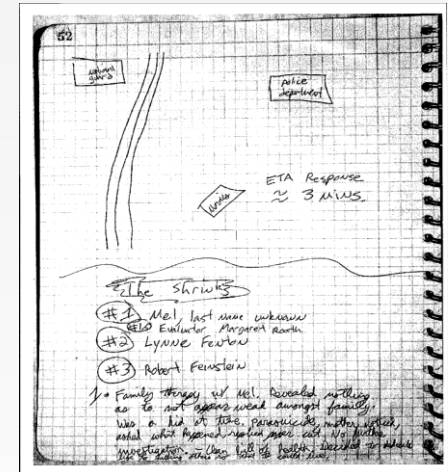 52
national guard
Police
department
ETA Response
≈ 3 mins.
The Shrinks
#1 Mel, last name unknown
Evaluator Margaret Roath
#2 Lynne Fenton
#3 Robert Feinstein
1. Family therapy w/ Mel. Revealed nothing
as to not appear weak amongst family.
Was a kid at time, mother noticed,
asked what happened over cut. No further
investigation.